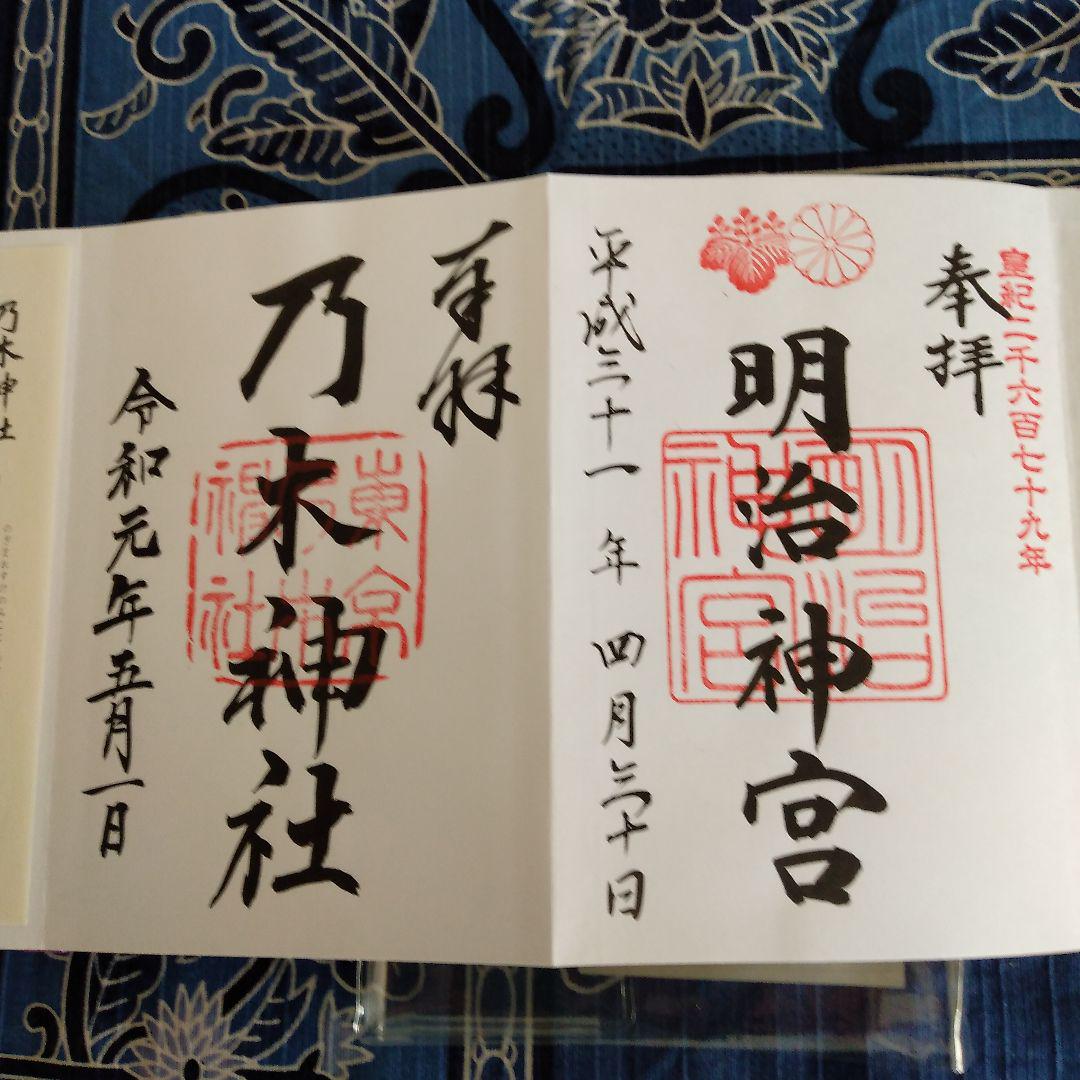 皇紀二千六百七十九年
奉拝
明治神宮
明治神宮
平成三十一年四月三十日
奉拝
乃木神社
令和元年五月一日
乃木神社